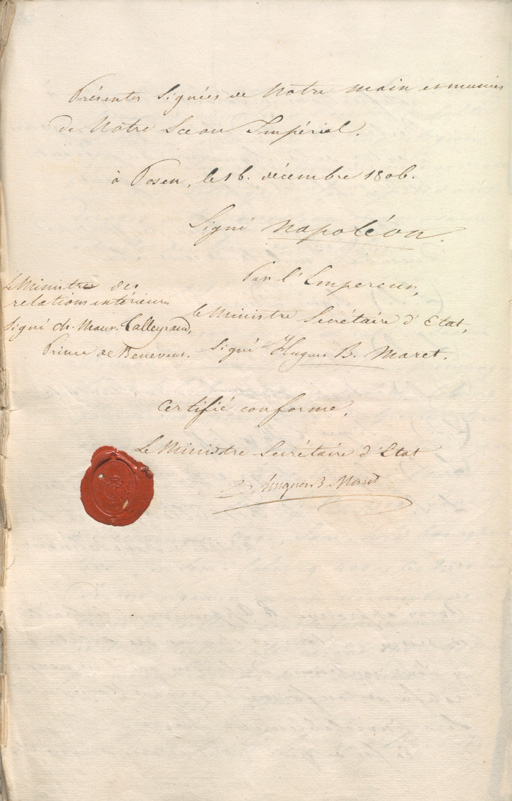 Présentes Signées de Notre main et munies
de Notre Sceau Impérial.
à Posen, le 16. décembre 1806.
Signé Napoléon.
Par l'Empereur,
le Ministre Secrétaire d'Etat,
Signé Hugues B. Maret.
Le Ministre des
relations extérieures
Signé Ch. Maur. Talleyrand,
Prince de Benevent.
Certifié conforme,
Le Ministre Secrétaire d'Etat
Hugues B. Maret